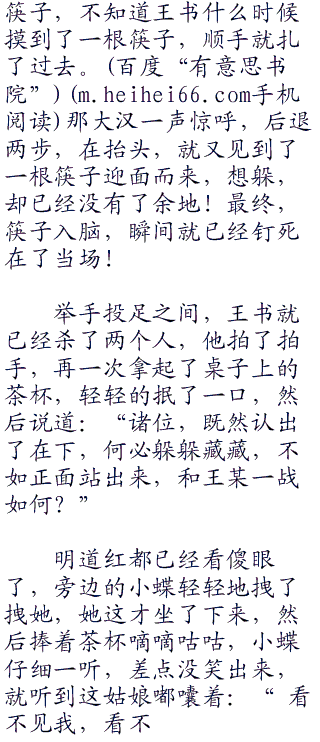 筷子，不知道王书什么时候
摸到了一根筷子，顺手就扎
了过去。(百度“有意思书
院”)(m.heihei66.com手机
阅读)那大汉一声惊呼，后退
两步，在抬头，就又见到了
一根筷子迎面而来，想躲，
却已经没有了余地！最终，
筷子入脑，瞬间就已经钉死
在了当场！
举手投足之间，王书就
已经杀了两个人，他拍了拍
手，再一次拿起了桌子上的
茶杯，轻轻的抿了一口，然
后说道：“诸位，既然认出
了在下，何必躲躲藏藏，不
如正面站出来，和王某一战
如何？”
明道红都已经看傻眼
了，旁边的小蝶轻轻地拽了
拽她，她这才坐了下来，然
后捧着茶杯嘀嘀咕咕，小蝶
仔细一听，差点没笑出来，
就听到这姑娘嘟囔着：“ 看
不见我，看不